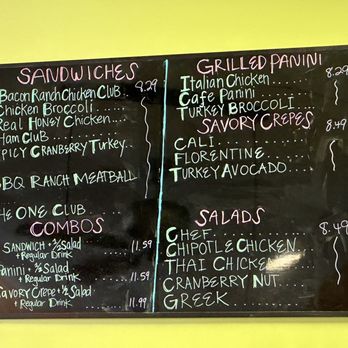 SANDWICHES
Bacon Ranch Chicken Club 8.29
Chicken Broccoli
Real Honey Chicken
Ham Club
Spicy Cranberry Turkey
BBQ Ranch Meatball
The One Club
COMBOS
Sandwich + ½ Salad
+ Regular Drink 11.59
Panini + ½ Salad
+ Regular Drink 11.59
Savory Crepe + ½ Salad
+ Regular Drink 11.99
GRILLED PANINI
Italian Chicken 8.29
Cafe Panini
Turkey Broccoli
SAVORY CREPES
Cali 8.49
Florentine
Turkey Avocado
SALADS
Chef 8.49
Chipotle Chicken
Thai Chicken
Cranberry Nut
Greek